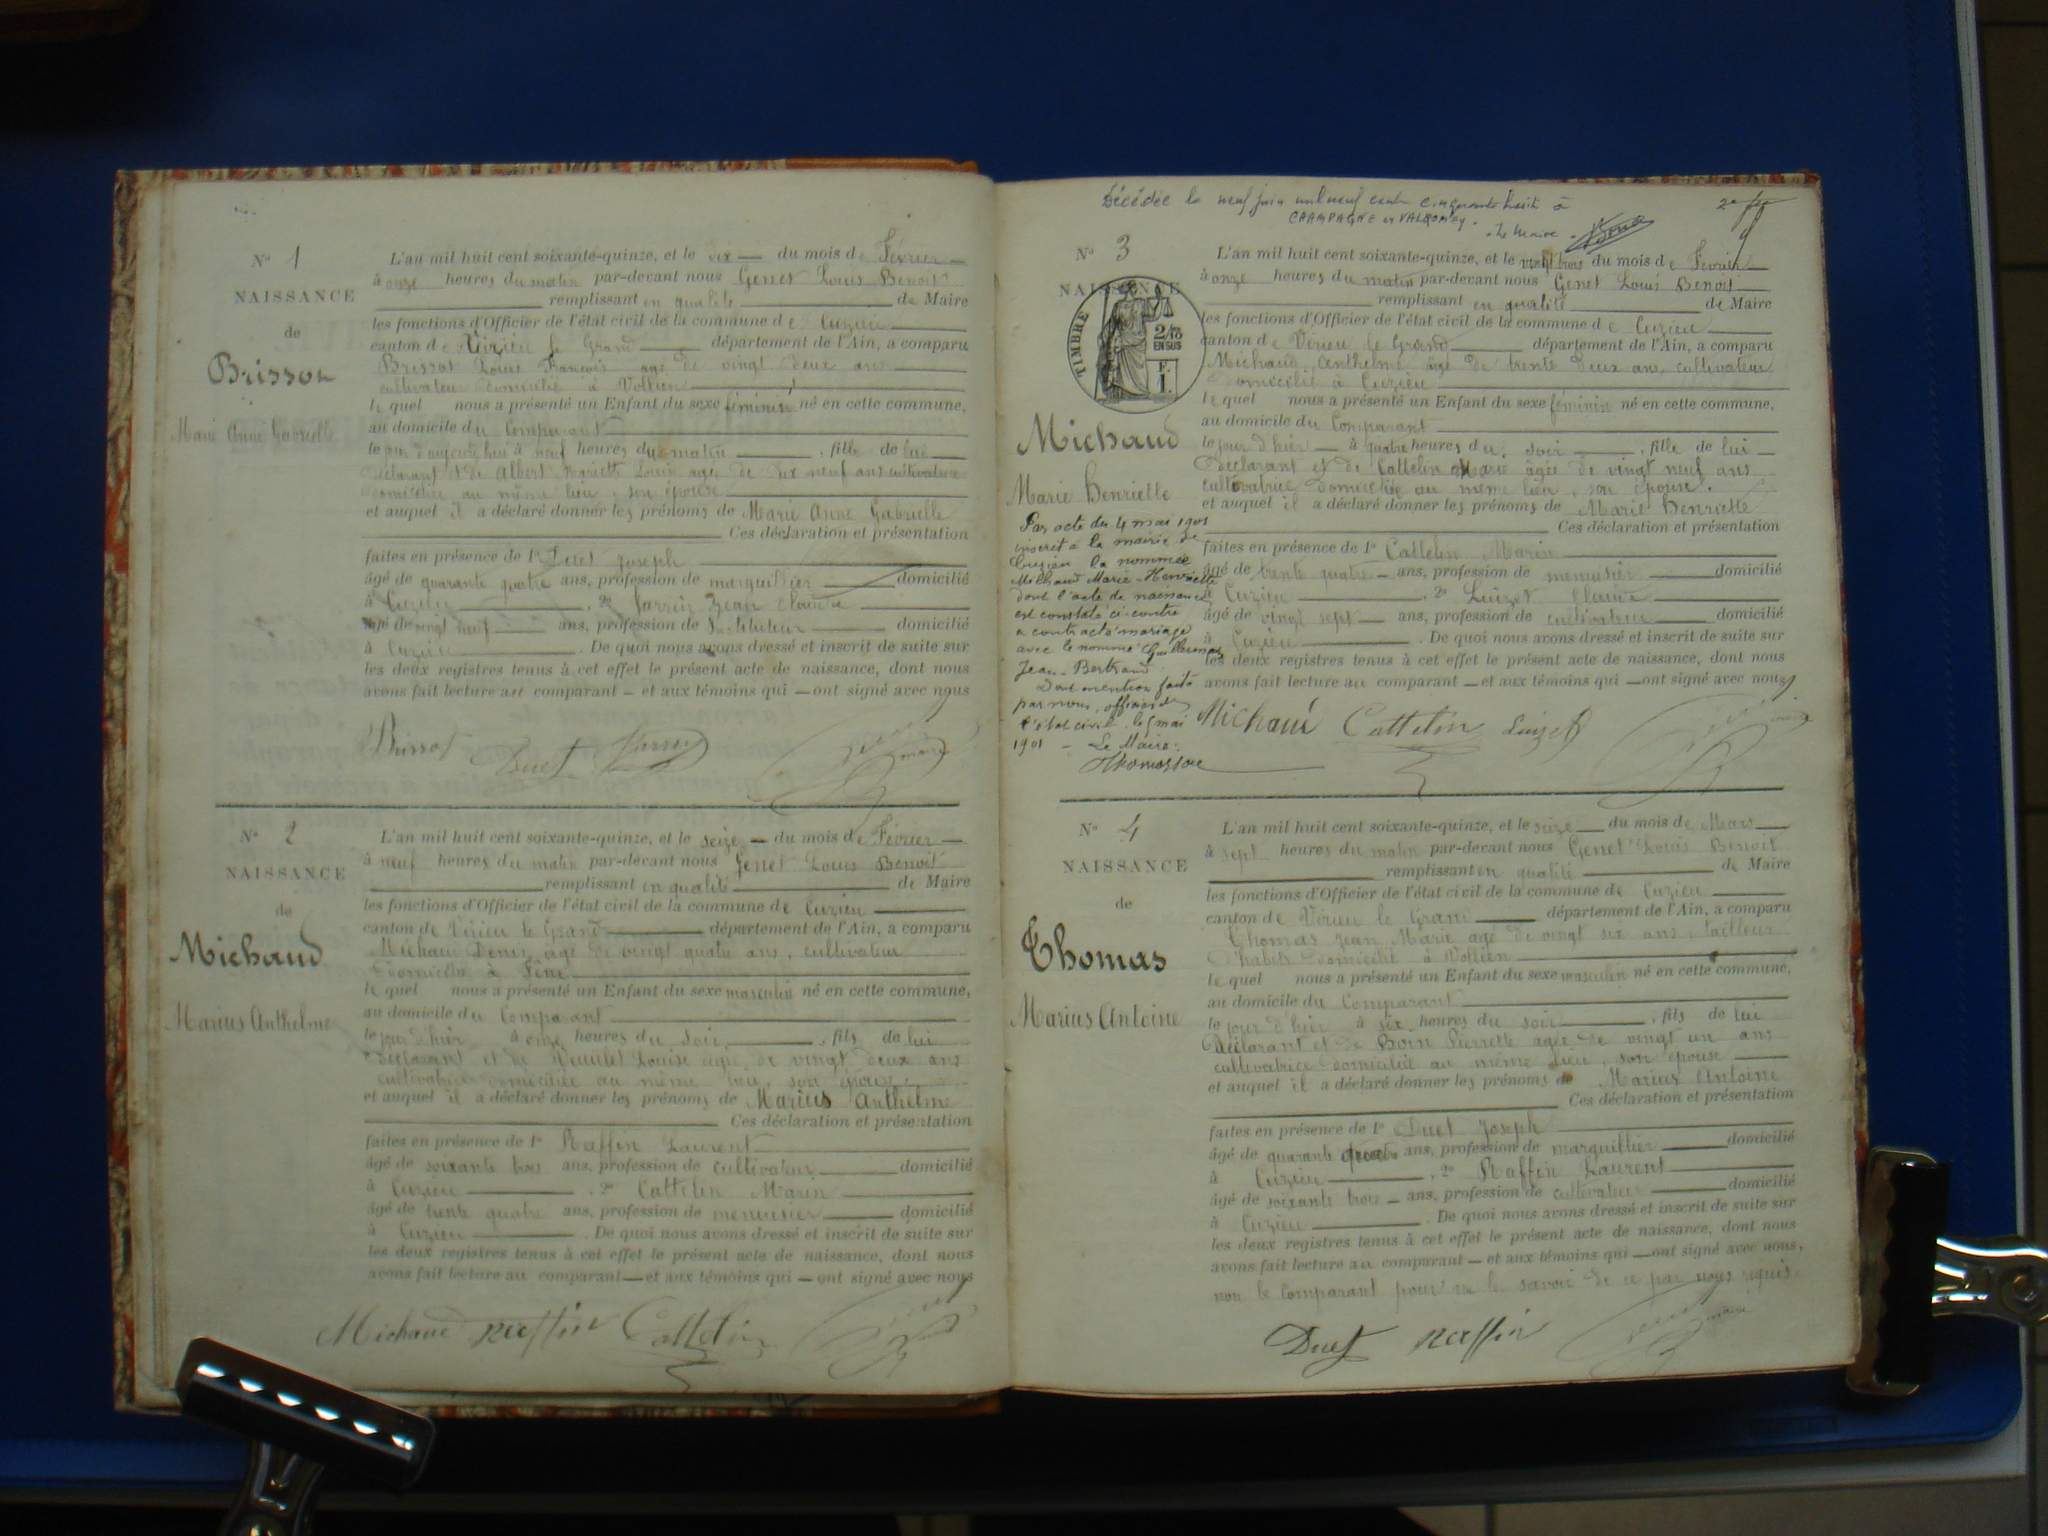 N° 1
NAISSANCE
de
Brissot
Marie Anne Gabrielle
L'an mil huit cent soixante-quinze, et le dix du mois de Février
à onze heures du matin par-devant nous Genet Louis Benoit
remplissant en qualité de Maire
les fonctions d'Officier de l'état civil de la commune de Cuzieu
canton de Virieu le Grand département de l'Ain, a comparu
Brissot Louis François âgé de vingt deux ans
cultivateur domicilié à Vollien
lequel nous a présenté un Enfant du sexe féminin né en cette commune,
au domicile du Comparant
le jour d'aujourd'hui à neuf heures du matin, fille de lui
déclarant et de Albert Louise âgée de dix neuf ans cultivatrice
domiciliée au même lieu, son épouse
et auquel il a déclaré donner les prénoms de Marie Anne Gabrielle
Ces déclaration et présentation
faites en présence de 1° Duet Joseph
âgé de quarante quatre ans, profession de marguillier domicilié
à Cuzieu, 2° Jean Claude
âgé de vingt neuf ans, profession de Instituteur domicilié
à Cuzieu. De quoi nous avons dressé et inscrit de suite sur
les deux registres tenus à cet effet le présent acte de naissance, dont nous
avons fait lecture au comparant et aux témoins qui ont signé avec nous
Brissot Duet maire
N° 2
NAISSANCE
de
Michaud
Marius Anthelme
L'an mil huit cent soixante-quinze, et le seize du mois de Février
à neuf heures du matin par-devant nous Genet Louis Benoit
remplissant en qualité de Maire
les fonctions d'Officier de l'état civil de la commune de Cuzieu
canton de Virieu le Grand département de l'Ain, a comparu
Michaud Denis, âgé de vingt quatre ans, cultivateur
domicilié à
lequel nous a présenté un Enfant du sexe masculin né en cette commune,
au domicile du Comparant
le jour d'hier à onze heures du soir, fils de lui
déclarant et de Louise âgée de vingt deux ans
cultivatrice domiciliée au même lieu, son épouse,
et auquel il a déclaré donner les prénoms de Marius Anthelme
Ces déclaration et présentation
faites en présence de 1° Raffin Laurent
âgé de soixante trois ans, profession de cultivateur domicilié
à Cuzieu, 2° Cattelin Marin
âgé de trente quatre ans, profession de menuisier domicilié
à Cuzieu. De quoi nous avons dressé et inscrit de suite sur
les deux registres tenus à cet effet le présent acte de naissance, dont nous
avons fait lecture au comparant et aux témoins qui ont signé avec nous
Michaud Raffin Cattelin
Décédée le neuf juin mil neuf cent cinquante huit à
CHAMPAGNE en VALROMEY.
Le Maire.
N° 3
NAISSANCE
TIMBRE
2/10
EN SUS
F.
1.
Michaud
Marie Henriette
Par acte du 4 mai 1901
inscrit à la mairie de
Cuzieu la nommée
Michaud Marie-Henriette
dont l'acte de naissance
est constaté ci-contre
a contracté mariage
avec le nommé
Jean-Bertrand
Dont mention faite
par nous, officier de
l'état civil, le 5 mai
1901 - Le Maire:
L'an mil huit cent soixante-quinze, et le vingt trois du mois de Février
à onze heures du matin par-devant nous Genet Louis Benoit
remplissant en qualité de Maire
les fonctions d'Officier de l'état civil de la commune de Cuzieu
canton de Virieu le Grand département de l'Ain, a comparu
Michaud Anthelme âgé de trente deux ans, cultivateur
domicilié à Cuzieu
lequel nous a présenté un Enfant du sexe féminin né en cette commune,
au domicile du Comparant
le jour d'hier à quatre heures du soir, fille de lui
déclarant et de Cattelin Marie âgée de vingt neuf ans
cultivatrice domiciliée au même lieu, son épouse.
et auquel il a déclaré donner les prénoms de Marie Henriette
Ces déclaration et présentation
faites en présence de 1° Cattelin Marin
âgé de trente quatre ans, profession de menuisier domicilié
à Cuzieu, 2° Luizet Claude
âgé de vingt sept ans, profession de cultivateur domicilié
à Cuzieu. De quoi nous avons dressé et inscrit de suite sur
les deux registres tenus à cet effet le présent acte de naissance, dont nous
avons fait lecture au comparant et aux témoins qui ont signé avec nous
Michaud Cattelin Luizet
N° 4
NAISSANCE
de
Thomas
Marius Antoine
L'an mil huit cent soixante-quinze, et le seize du mois de Mars
à sept heures du matin par-devant nous Genet Louis Benoit
remplissant en qualité de Maire
les fonctions d'Officier de l'état civil de la commune de Cuzieu
canton de Virieu le Grand département de l'Ain, a comparu
Thomas Jean Marie âgé de vingt six ans, tailleur
d'habits domicilié à Vollien
lequel nous a présenté un Enfant du sexe masculin né en cette commune,
au domicile du Comparant
le jour d'hier à six heures du soir, fils de lui
déclarant et de Boin Pierrette âgée de vingt un ans
cultivatrice domiciliée au même lieu, son épouse
et auquel il a déclaré donner les prénoms de Marius Antoine
Ces déclaration et présentation
faites en présence de 1° Duet Joseph
âgé de quarante quatre ans, profession de marguillier domicilié
à Cuzieu, 2° Raffin Laurent
âgé de soixante trois ans, profession de cultivateur domicilié
à Cuzieu. De quoi nous avons dressé et inscrit de suite sur
les deux registres tenus à cet effet le présent acte de naissance, dont nous
avons fait lecture au comparant et aux témoins qui ont signé avec nous,
non le comparant pour ne le savoir de ce par nous requis.
Duet Raffin maire